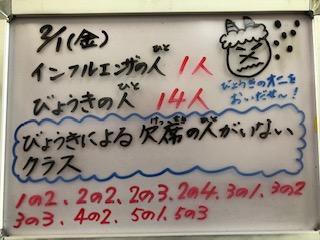 2/1(金)
インフルエンザの人 1人
びょうきの人 14人
びょうきのオニを
おいだせん!
びょうきによる欠席の人がいない
クラス
1の2、2の2、2の3、2の4、3の1、3の2
3の3、4の2、5の1、5の3